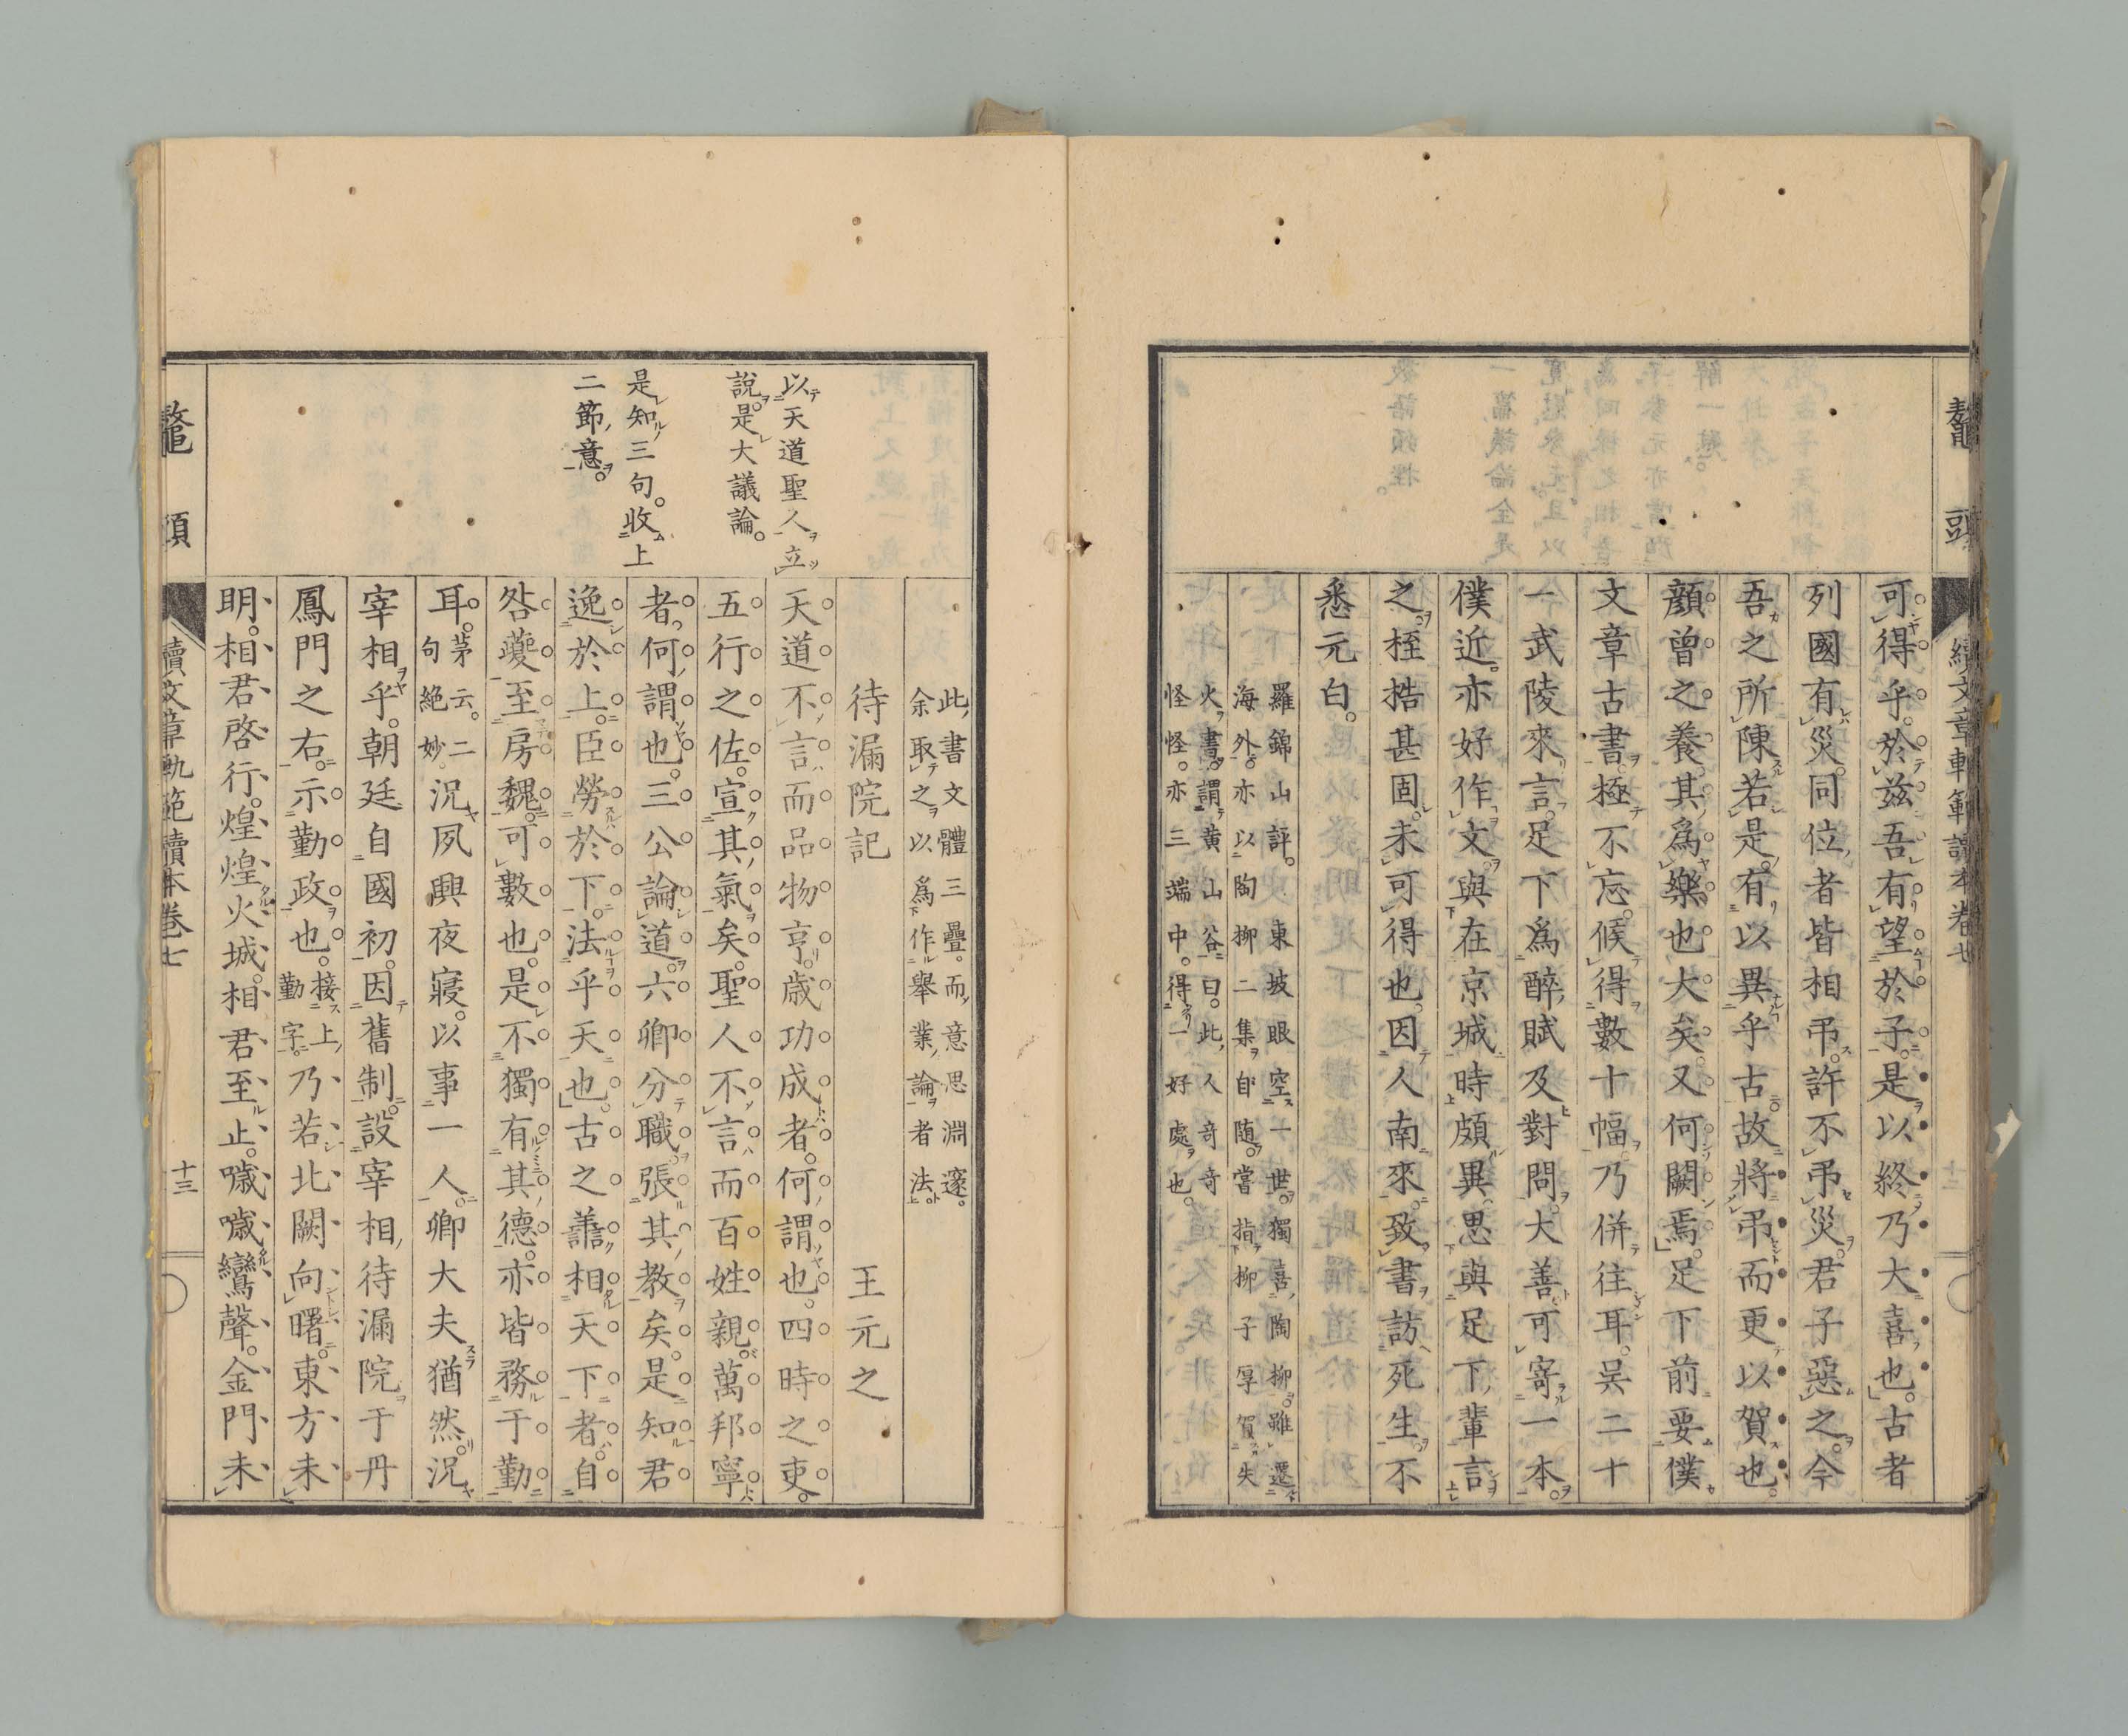 鼇頭
續文章軌範讀本卷七
可得乎。於茲吾有望於子。是以終乃大喜也。古者
列國有災。同位者皆相弔。許不弔災。君子惡之。今
吾之所陳若是。有以異乎古。故將弔而更以賀也。
顏曾之養。其爲樂也大矣。又何闕焉。足下前要僕
文章古書。極不忘。候得數十幅。乃併往耳。吳二十
一武陵來言。足下爲醉賦及對問。大善。可寄一本。
僕近亦好作文。與在京城時頗異。思與足下輩言
之。桎梏甚固。未可得也。因人南來。致書訪死生。不
悉。元白。
羅錦山評。東坡眼空一世。獨喜陶柳。雖遷
海外。亦以陶柳二集自随。嘗指柳子厚賀失
火書。謂黄山谷曰。此人奇奇
怪怪。亦三端中。得一好處也。
此書文體三疊。而意思淵邃。
余取之以爲作舉業論者法。
待漏院記
王元之
以天道聖人立
說。是大議論。
天道不言而品物亨。歲功成者。何謂也。四時之吏。
五行之佐。宣其氣矣。聖人不言而百姓親。萬邦寧
是知三句。收上
二節意。
者。何謂也。三公論道。六卿分職。張其教矣。是知君
逸於上。臣勞於下。法乎天也。古之善相天下者。自
咎夔至房魏。可數也。是不獨有其德。亦皆務于勤
耳。茅云。二句絕妙。況夙興夜寢。以事一人。卿大夫猶然。況
宰相乎。朝廷自國初。因舊制。設宰相待漏院于丹
鳳門之右。示勤政也。接上勤字。乃若北闕向曙。東方未
明。相君啓行。煌煌火城。相君至止。噦噦鸞聲。金門未
鼇頭
續文章軌範讀本卷七
十三